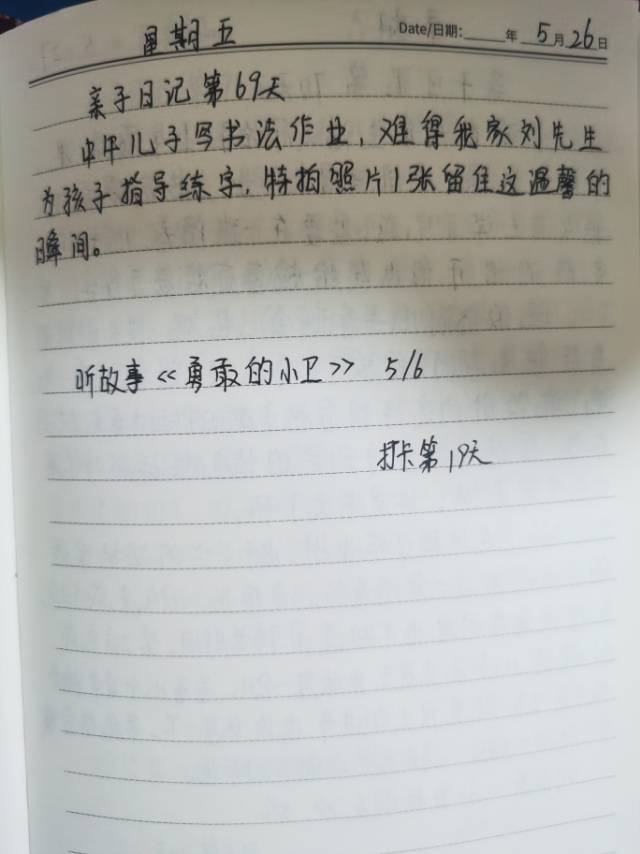 星期五 Date/日期: 年 5月26日
亲子日记第69天
中午儿子写书法作业,难得我家刘先生
为孩子指导练字,特拍照片1张留住这温馨的
瞬间。
听故事<<勇敢的小卫>> 5/6
打卡第19天